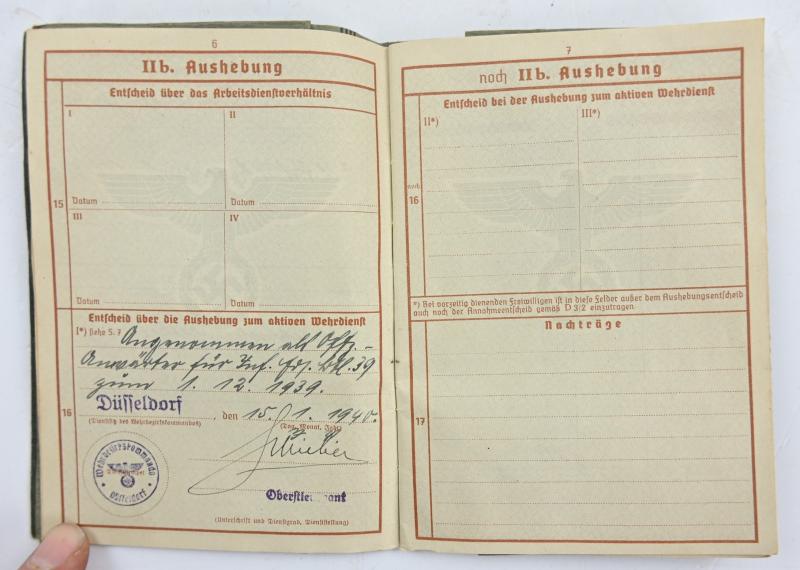 6
IIb. Aushebung
Entscheid über das Arbeitsdienstverhältnis
I
II
15
Datum
Datum
III
IV
Datum
Datum
Entscheid über die Aushebung zum aktiven Wehrdienst
I*) siehe S. 7
Angenommen als Offz.-
Anwärter für Inf. Ers. Btl. 39
zum 1. 12. 1939.
16
Düsseldorf, den 15. 1. 1940.
(Dienstsitz des Wehrbezirkskommandos)
(Tag, Monat, Jahr)
Wehrbezirkskommando
Düsseldorf
(Unterschrift und Dienstgrad, Dienststellung)
7
noch IIb. Aushebung
Entscheid bei der Aushebung zum aktiven Wehrdienst
II*)
III*)
noch
16
*) Bei vorzeitig dienenden Freiwilligen ist in diese Felder außer dem Aushebungsentscheid
auch noch der Annahmeentscheid gemäß D 3/2 einzutragen.
Nachträge
17